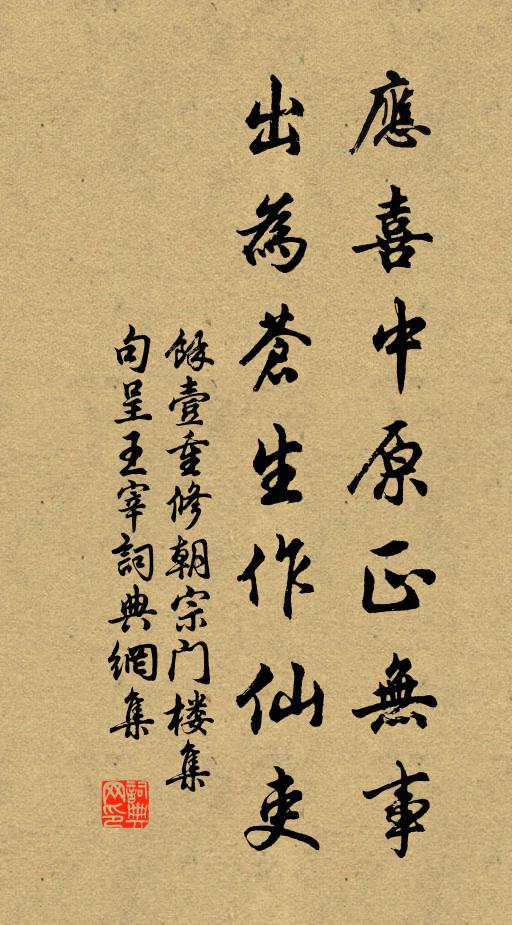 應喜中原正無事
出為蒼生作仙吏
餘壹重修朝宗门楼集
句呈王宰詞典網集
詞典网印